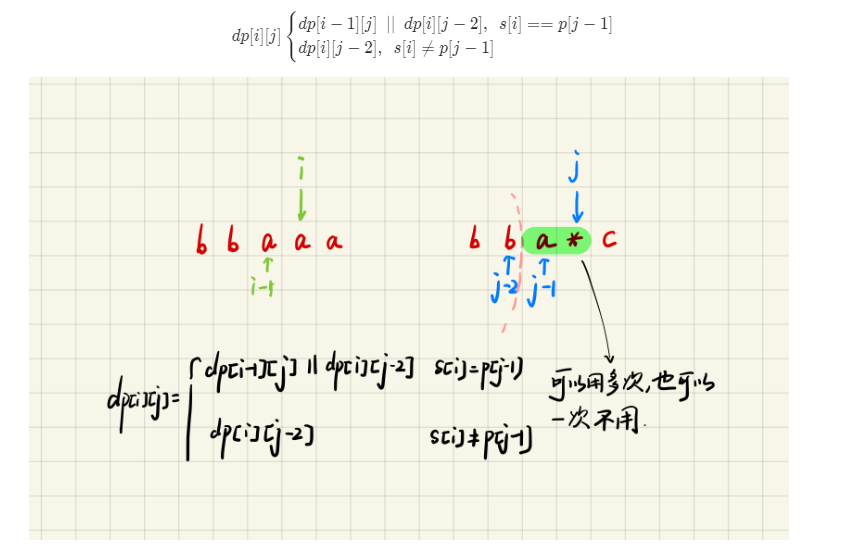 dp[i][j] { dp[i−1][j] || dp[i][j−2], s[i] == p[j−1]
dp[i][j−2], s[i] ≠ p[j−1]
i
j
b b a a a
b b a * c
i-1
j-2 j-1
dp[i][j]= { dp[i-1][j] || dp[i][j-2] s[i]=p[j-1]
dp[i][j-2] s[i]≠p[j-1]
可以用多次,也可以
一次不用.